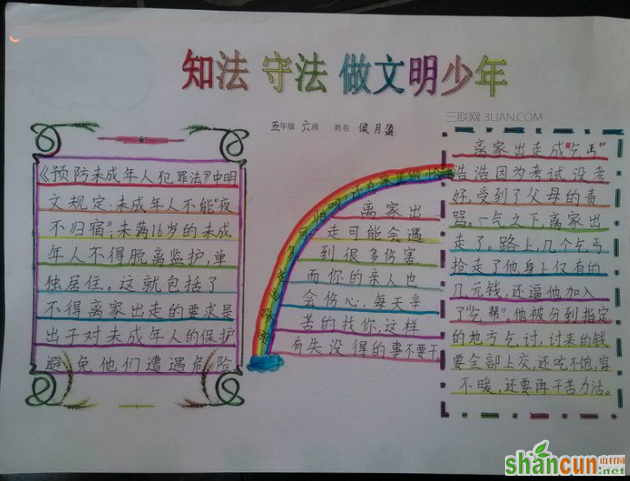 知法 守法 做文明少年
三联网 3LIAN.COM
五年级 六班 姓名 侯月盈
《预防未成年人犯罪法》中明
文规定:未成年人不能“夜
不归宿”;未满16岁的未成
年人不得脱离监护,单
独居住。这就包括了
不得离家出走的要求是
出于对未成年人的保护
避免他们遭遇危险
离家出
走可能会遇
到很多伤害
而你的亲人也
会伤心,每天辛
苦的找你,这样
有失没得的事不要干
离家出走成“乞丐”
浩浩因为考试没考
好,受到了父母的责
骂。一气之下,离家出
走了。路上,几个乞丐
抢走了他身上仅有的
几元钱,还逼他加入
了“乞帮”,他被分到指定
的地方乞讨,讨来的钱
要全部上交,还吃不饱,穿
不暖,还要再干苦力活。
shancun
山村网
.net